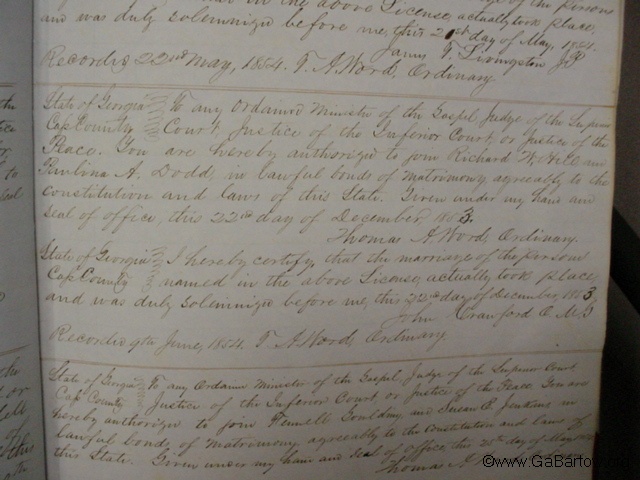 in the above License, actually took place,
and was duly solemnized before me, this 20st day of May, 1854.
James T. Livingston JP
Recorded 22nd May, 1854. T. A. Word, Ordinary.
State of Georgia To any Ordained Minister of the Gospel, Judge of the Superior
Cass County Court, Justice of the Inferior Court, or Justice of the
Peace. You are hereby authorized to join Richard
Paulina A. Dodd, in lawful bonds of matrimony, agreeably to the
constitution and laws of this State. Given under my hand and
seal of office, this 22nd day of December 1853.
Thomas A. Word, Ordinary.
State of Georgia I hereby certify, that the marriage of the persons
Cass County named in the above License, actually took place,
and was duly solemnized before me, this 22nd day of December, 1853,
John Crawford O. M. G
Recorded 9th June, 1854. T. A. Word, Ordinary.
State of Georgia To any Ordained Minister of the Gospel, Judge of the Superior Court
Cass County Justice of the Inferior Court, or Justice of the Peace You are
hereby authorized to join Goulding and Susan E. Jenkins in
lawful bonds, of Matrimony agreeably to the Constitution and laws of
this State. Given under my hand and seal of office, the day of May
Thomas A
©www.GaBarto